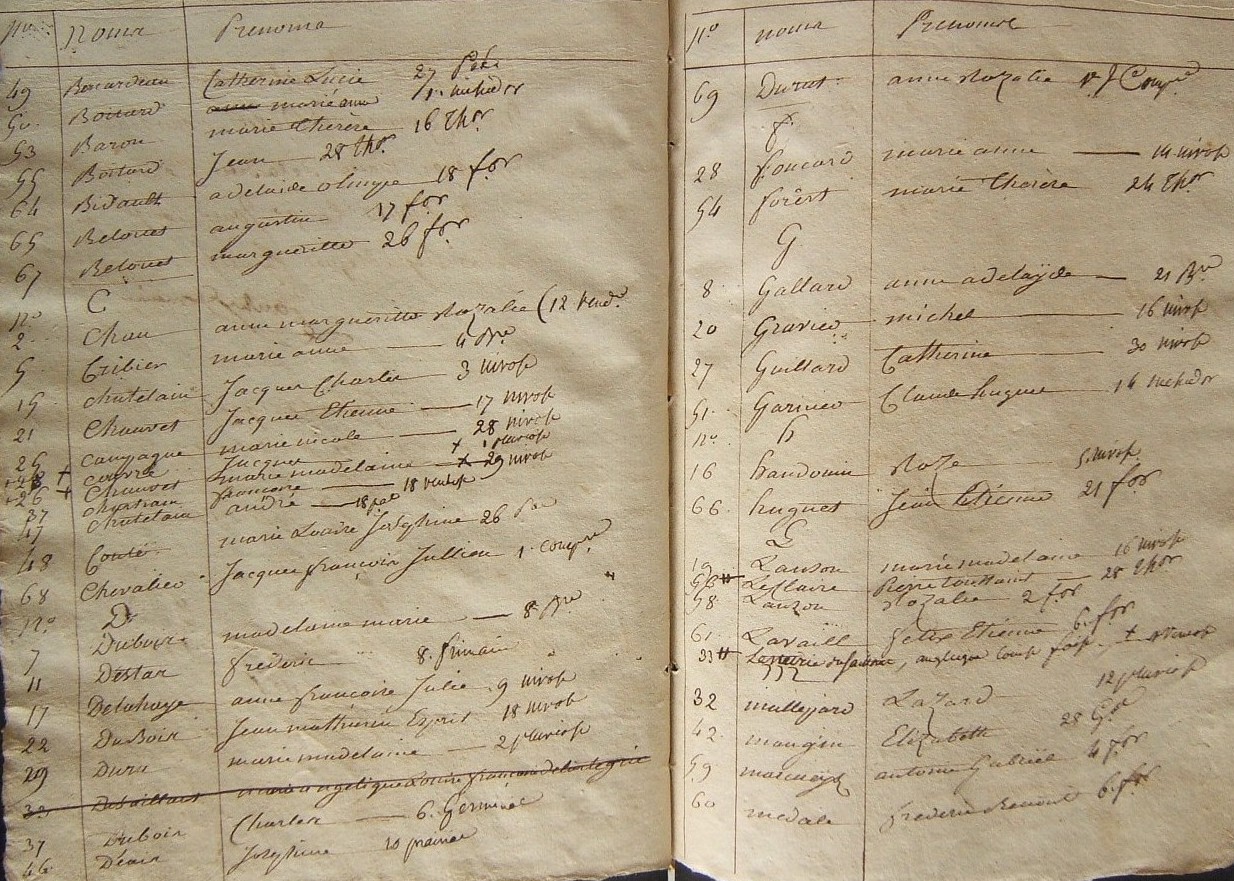 n.o noms Prenoms
49 Catherine Lucie 27
50 Boitard marie anne 1.r messidor
53 Baron marie therese 16 Thor
55 Boitard Jean 28 Thor
64 Bidault adelaide olimpe 18 for
65 Belouet augustin 17 for
67 Belouet margueritte 26 for
n.o C
2 Chau anne margueritte Rozalie (12 vend.re
5 Cribier marie anne 4 Bre
15 chatelain Jacques Charles 3 nivose
21 Chauvet Jacques Etienne 17 nivose
25 campagne marie nicole 28 nivose
+ Jacques + 1 pluviose
26 + Chauvet marie madelaine + 29 nivose
37 chatelain andré
françoise 18 ventose
47 marie Louise Joséphine 26
48 Couté
68 Chevalier Jacques françois Jullien 1.r comp.re
n.o D
7 Dubois madelaine marie 8 Bre
11 Destan frederic 8. frimaire
17 Delahaye anne françoise Julie 9 nivose
22 DuBois Jean mathurin Esprit 18 nivose
29 Dura marie madelaine 2 pluviose
33 Desaillant
37 Dubois Charles 6. Germinal
46 Déais Joséphine 10 prairial
n.o noms Prenoms
69 Durut anne Rozalie
f
28 foucard marie anne 14 nivose
54 forest marie therese 24 Thor
G
8 Gallard anne adelaÿde 21 Bre
20 Gravier michel 16 nivose
27 Guillard Catherine 30 nivose
51 Garnier Claude hugue 14 messidor
n.o h
16 baudouin Roze 5 nivose
66 huguet Jean Etienne 21 for
L
19 Lanson marie madelaine 16 nivose
56 # LeClaire Pierre toussaint 28 Thor
58 Lauzon Rozalie 2 for
61 Lavaill felix Etienne 6. for
33 # angelique louise
32 mallejard Lazard 12 pluviose
42 maugin Elizabeth 28 G.al
59 antoine Gabriel 4 for
60 medale frederic Benoit 6. for